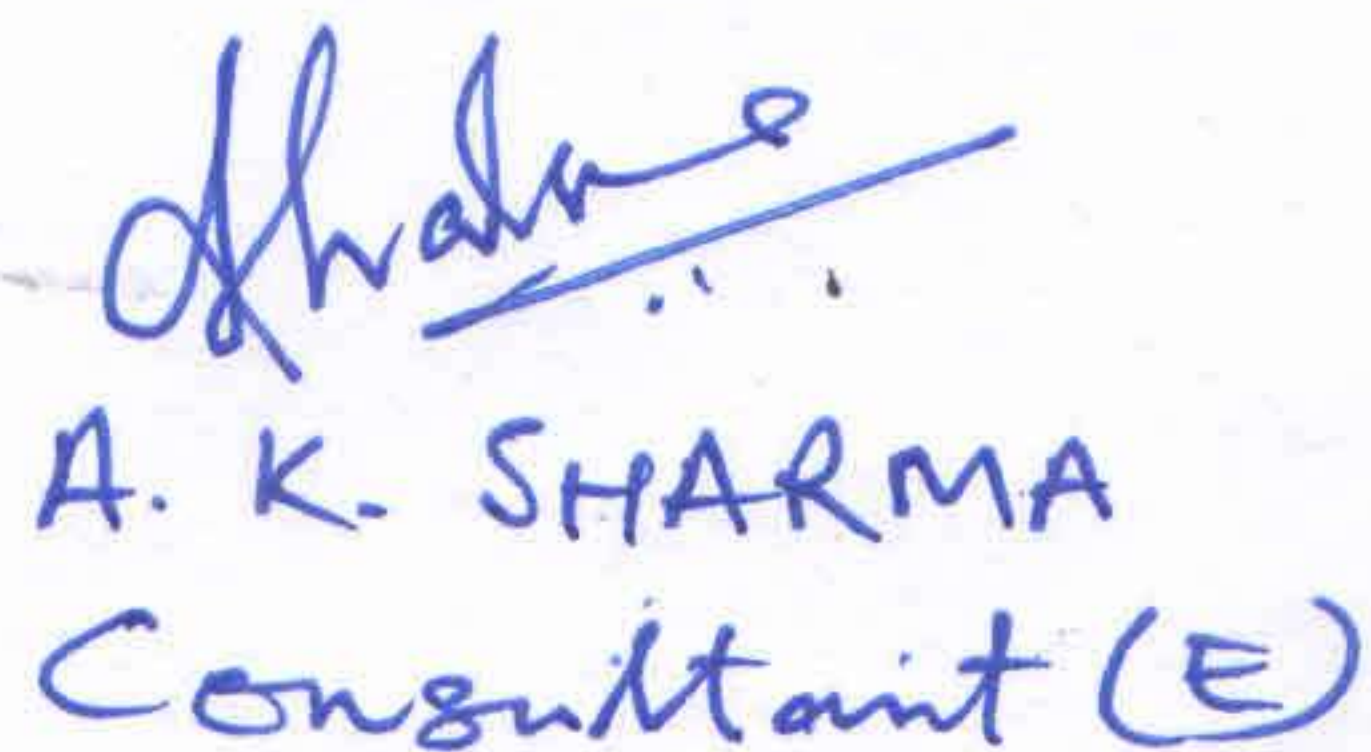 A. K. SHARMA
Consultant (E)